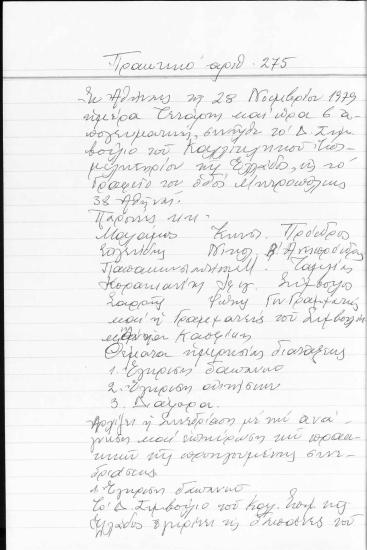 Πρακτικό αριθ. 275
Στην Αθήνα τη 28 Νοεμβρίου 1979
ημέρα Τετάρτη και ώρα 6
απογευματινή, συνήλθε το Δ. Συμ
βούλιο του Καλλιτεχνικού Επι
μελητηρίου της Ελλάδος, στο
Γραφείο του οδός Μητροπόλεως
38 Αθήνα.
Παρόντες κ.κ.
Κωνστ. Πρόεδρος
Νικόλ. Α' Αντιπρόεδρος
Παπακωνσταντίνου Μ. Ταμίας
Σύμβουλο
Σαρρής Φώτης Γεν Γραμματέας
και η Γραμματεύς του Συμβουλίου
Κασφίκη
Θέματα ημερησίας διατάξεως
1. Έγκριση δαπανών
2. Έγκριση αιτήσεων
3. Διάφορα.
Αρχίζει η συνεδρίαση με την ανά
γνωση και επικύρωση των πρακ
τικών της προηγουμένης συνε
δριάσεως
1. Έγκριση δαπανών
Το Δ. Συμβούλιο του Καλ. Επιμ. της
Ελλάδος εγκρίνει τις δαπάνες του